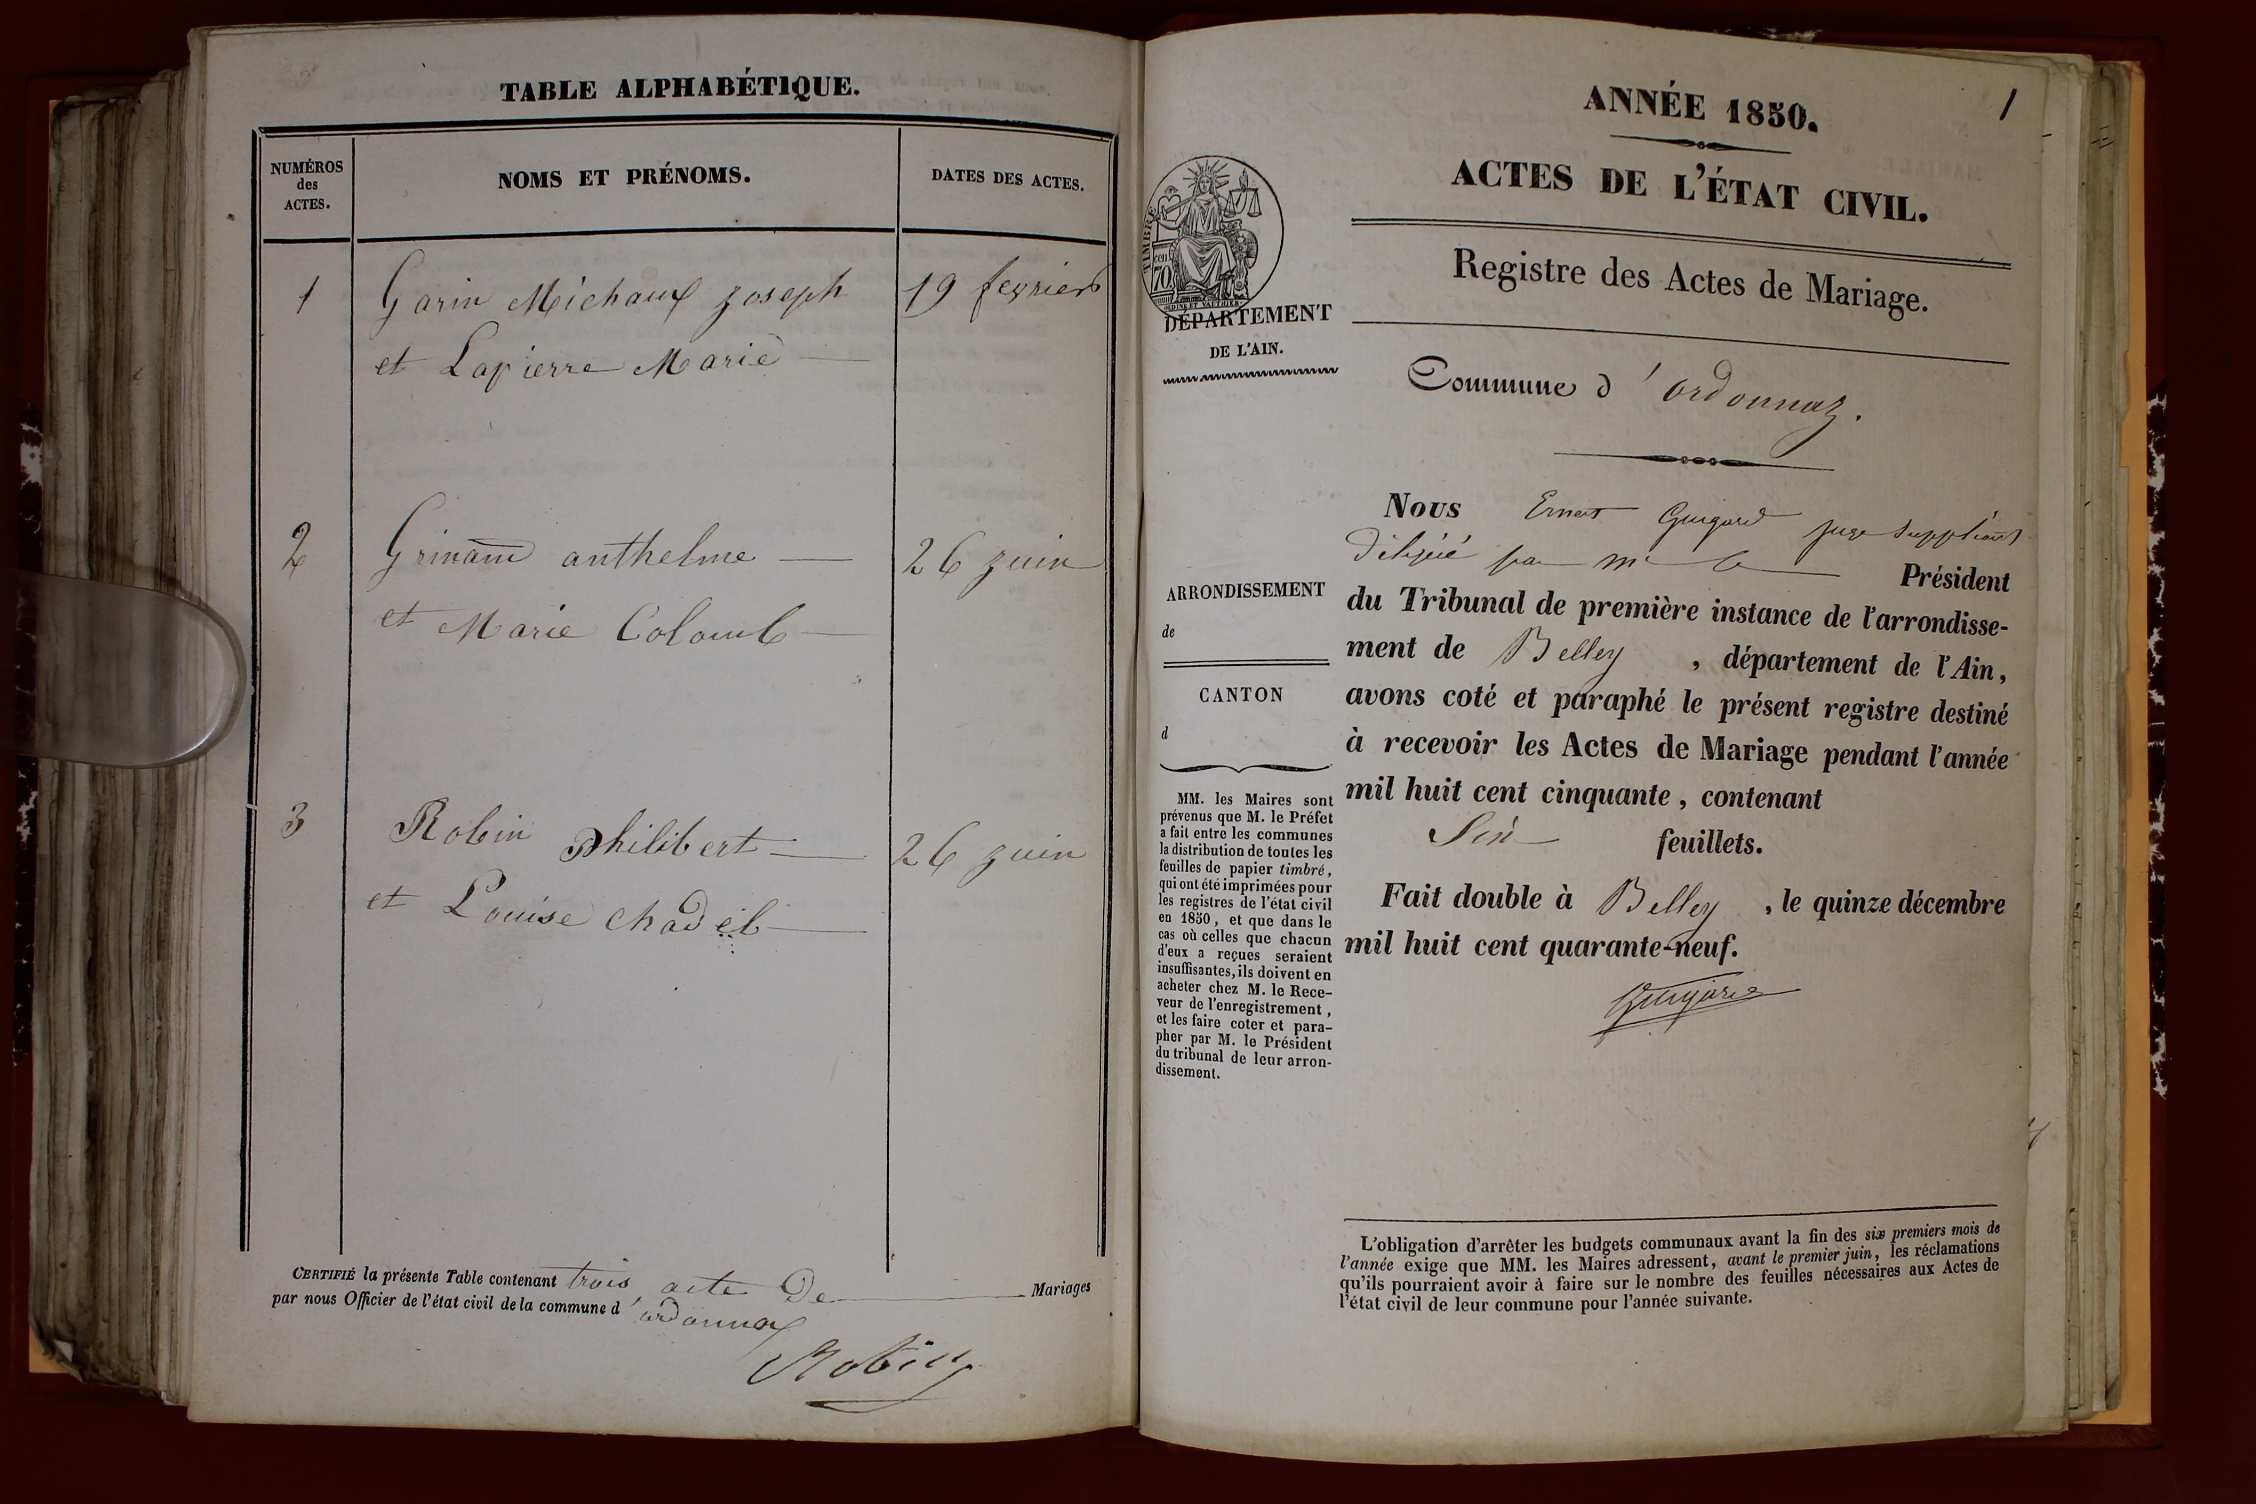 TABLE ALPHABÉTIQUE.
NUMÉROS
des
ACTES.
NOMS ET PRÉNOMS.
DATES DES ACTES.
1 Garin Michaux joseph 19 fevrier
et Lapierre Marie
2 anthelme 26 juin
et Marie Colomb
3 Robin philibert 26 juin
et Louise
CERTIFIÉ la présente Table contenant trois acte De Mariages
par nous Officier de l'état civil de la commune d'ordonnaz
Robin
1
ANNÉE 1850.
ACTES DE L'ÉTAT CIVIL.
Registre des Actes de Mariage.
TIMBRE
cen
70
DÉPARTEMENT
DE L'AIN.
Commune d'ordonnaz.
ARRONDISSEMENT
de
CANTON
d
MM. les Maires sont
prévenus que M. le Préfet
a fait entre les communes
la distribution de toutes les
feuilles de papier timbré,
qui ont été imprimées pour
les registres de l'état civil
en 1850, et que dans le
cas où celles que chacun
d'eux a reçues seraient
insuffisantes, ils doivent en
acheter chez M. le Rece-
veur de l'enregistrement,
et les faire coter et para-
pher par M. le Président
du tribunal de leur arron-
dissement.
Nous Ernest Guigard juge suppléant
Délégué par Mr le Président
du Tribunal de première instance de l'arrondisse-
ment de Belley, département de l'Ain,
avons coté et paraphé le présent registre destiné
à recevoir les Actes de Mariage pendant l'année
mil huit cent cinquante, contenant
Six feuillets.
Fait double à Belley, le quinze décembre
mil huit cent quarante-neuf.
Guigard
L'obligation d'arrêter les budgets communaux avant la fin des six premiers mois de
l'année exige que MM. les Maires adressent, avant le premier juin, les réclamations
qu'ils pourraient avoir à faire sur le nombre des feuilles nécessaires aux Actes de
l'état civil de leur commune pour l'année suivante.